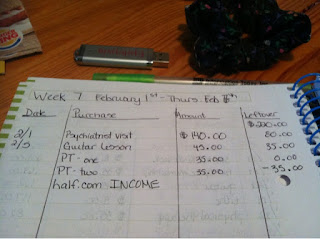 KING
Week 7 February 1st - Thurs. Feb
Date Purchase Amount Leftover
$220.00
2/1 Psychiatrist visit $140.00 80.00
2/5 Guitar Lesson 45.00 35.00
PT - one 35.00 0.00
PT - two 35.00 -35.00
half.com INCOME